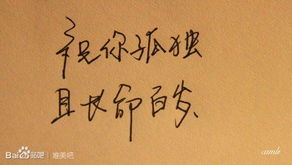 祝你孤独
且长命百岁
Bai贴吧 | 唯美吧